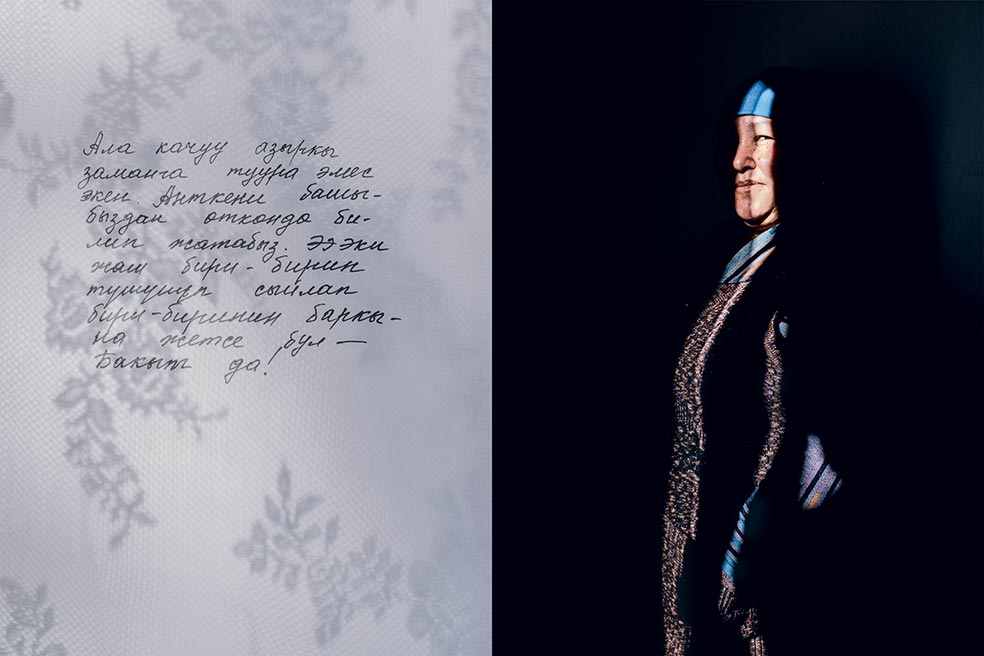 Ала качуу азыркы
заманга туура эмес
экен. Анткени башы-
быздан откондо би-
лип жатабыз. Ээ эки
жаш бири-бирин
тушунуп сыйлап
бири-биринин баркы-
на жетсе бул —
бакыт да!